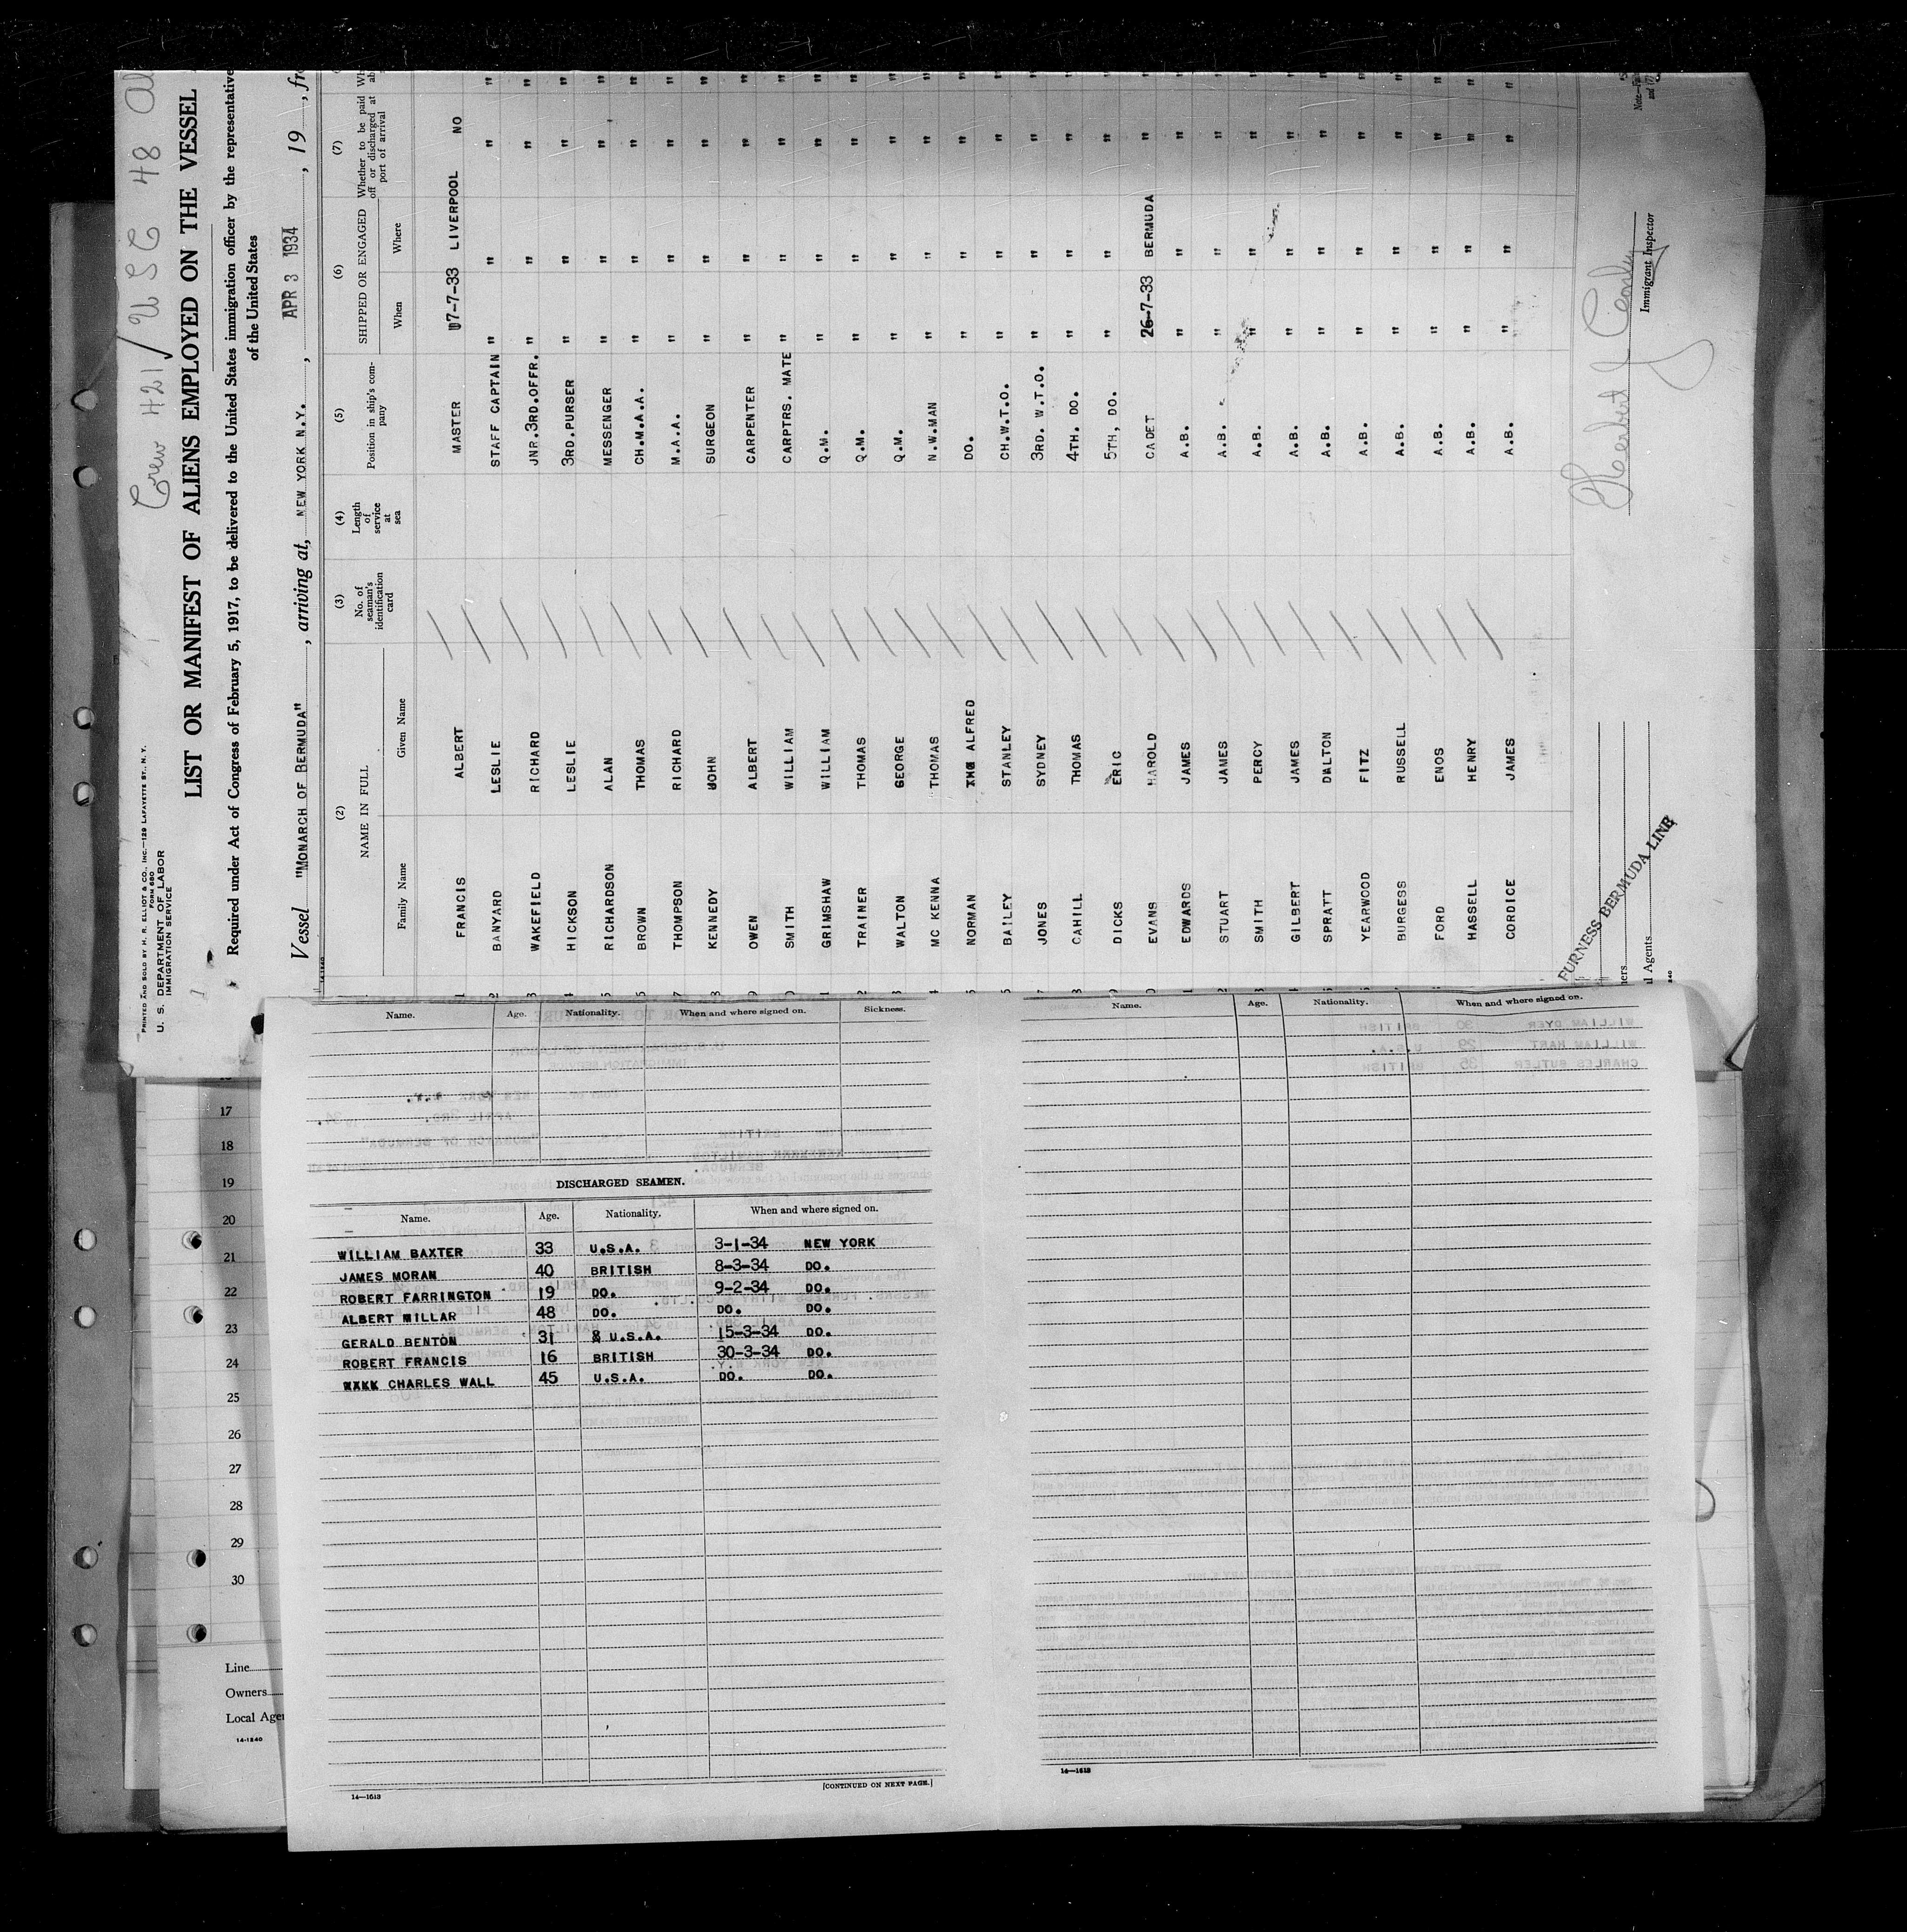 Crew 421 / USC 48 Al
PRINTED AND SOLD BY H. R. ELLIOT & CO., INC.—129 LAFAYETTE ST., N. Y.
FORM 680
U. S. DEPARTMENT OF LABOR
IMMIGRATION SERVICE
LIST OR MANIFEST OF ALIENS EMPLOYED ON THE VESSEL
Required under Act of Congress of February 5, 1917, to be delivered to the United States immigration officer by the representative
of the United States
Vessel "MONARCH OF BERMUDA", arriving at, NEW YORK N.Y., APR 3 1934, 19
14-1240
(2) (3) (4) (5) (6) (7)
NAME IN FULL No. of seaman's identification card Length of service at sea Position in ship's company SHIPPED OR ENGAGED Whether to be paid off or discharged at port of arrival
Family Name Given Name When Where
1 FRANCIS ALBERT MASTER 07-7-33 LIVERPOOL NO
2 BANYARD LESLIE STAFF CAPTAIN " " " "
3 WAKEFIELD RICHARD JNR.3RD.OFFR. " " " "
4 HICKSON LESLIE 3RD.PURSER " " " "
5 RICHARDSON ALAN MESSENGER " " " "
6 BROWN THOMAS CH.M.A.A. " " " "
7 THOMPSON RICHARD M.A.A. " " " "
8 KENNEDY JOHN SURGEON " " " "
9 OWEN ALBERT CARPENTER " " " "
0 SMITH WILLIAM CARPTRS. MATE " " " "
1 GRIMSHAW WILLIAM Q.M. " " " "
2 TRAINER THOMAS Q.M. " " " "
3 WALTON GEORGE Q.M. " " " "
4 MC KENNA THOMAS N.W.MAN " " " "
5 NORMAN ALFRED DO. " " " "
6 BAILEY STANLEY CH.W.T.O. " " " "
7 JONES SYDNEY 3RD. W.T.O. " " " "
8 CAHILL THOMAS 4TH. DO. " " " "
9 DICKS ERIC 5TH, DO. " " " "
0 EVANS HAROLD CADET 26-7-33 BERMUDA " "
1 EDWARDS JAMES A.B. " " " "
2 STUART JAMES A.B. " " " "
3 SMITH PERCY A.B. " " " "
4 GILBERT JAMES A.B. " " " "
SPRATT DALTON A.B. " " " "
YEARWOOD FITZ A.B. " " " "
BURGESS RUSSELL A.B. " " " "
FORD ENOS A.B. " " " "
HASSELL HENRY A.B. " " " "
CORDICE JAMES A.B. " " " "
FURNESS BERMUDA LINE
Immigrant Inspector
l Agents
Name. Age. Nationality. When and where signed on. Sickness.
DISCHARGED SEAMEN.
Name. Age. Nationality. When and where signed on.
WILLIAM BAXTER 33 U.S.A. 3-1-34 NEW YORK
JAMES MORAN 40 BRITISH 8-3-34 DO.
ROBERT FARRINGTON 19 DO. 9-2-34 DO.
ALBERT MILLAR 48 DO. DO. DO.
GERALD BENTON 31 & U.S.A. 15-3-34 DO.
ROBERT FRANCIS 16 BRITISH 30-3-34 DO.
CHARLES WALL 45 U.S.A. DO. DO.
[CONTINUED ON NEXT PAGE.]
14—1613
Name. Age. Nationality. When and where signed on.
14—1613
17
18
19
20
21
22
23
24
25
26
27
28
29
30
Line
Owners
Local Age
14-1240